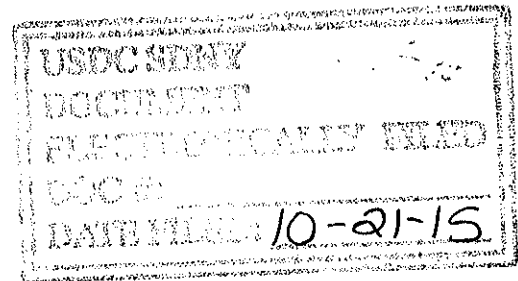 USDC SDNY
DOCUMENT
ELECTRONICALLY FILED
DOC #:
DATE FILED: 10-21-15